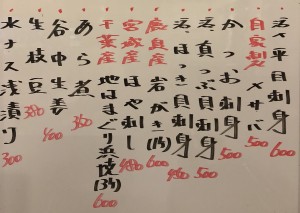 活〆平目刺身 600
自家製〆サバ 500
かつお刺身 500
活真つぶ貝刺身 500
活ほっき貝刺身 480
鹿島産岩がき(1ケ) 600
宮城産ほや刺し 480
千葉産地はまぐり浜焼(3ケ) 600
あら煮 380
谷中生姜 400
生枝豆 380
水ナス浅漬り 300